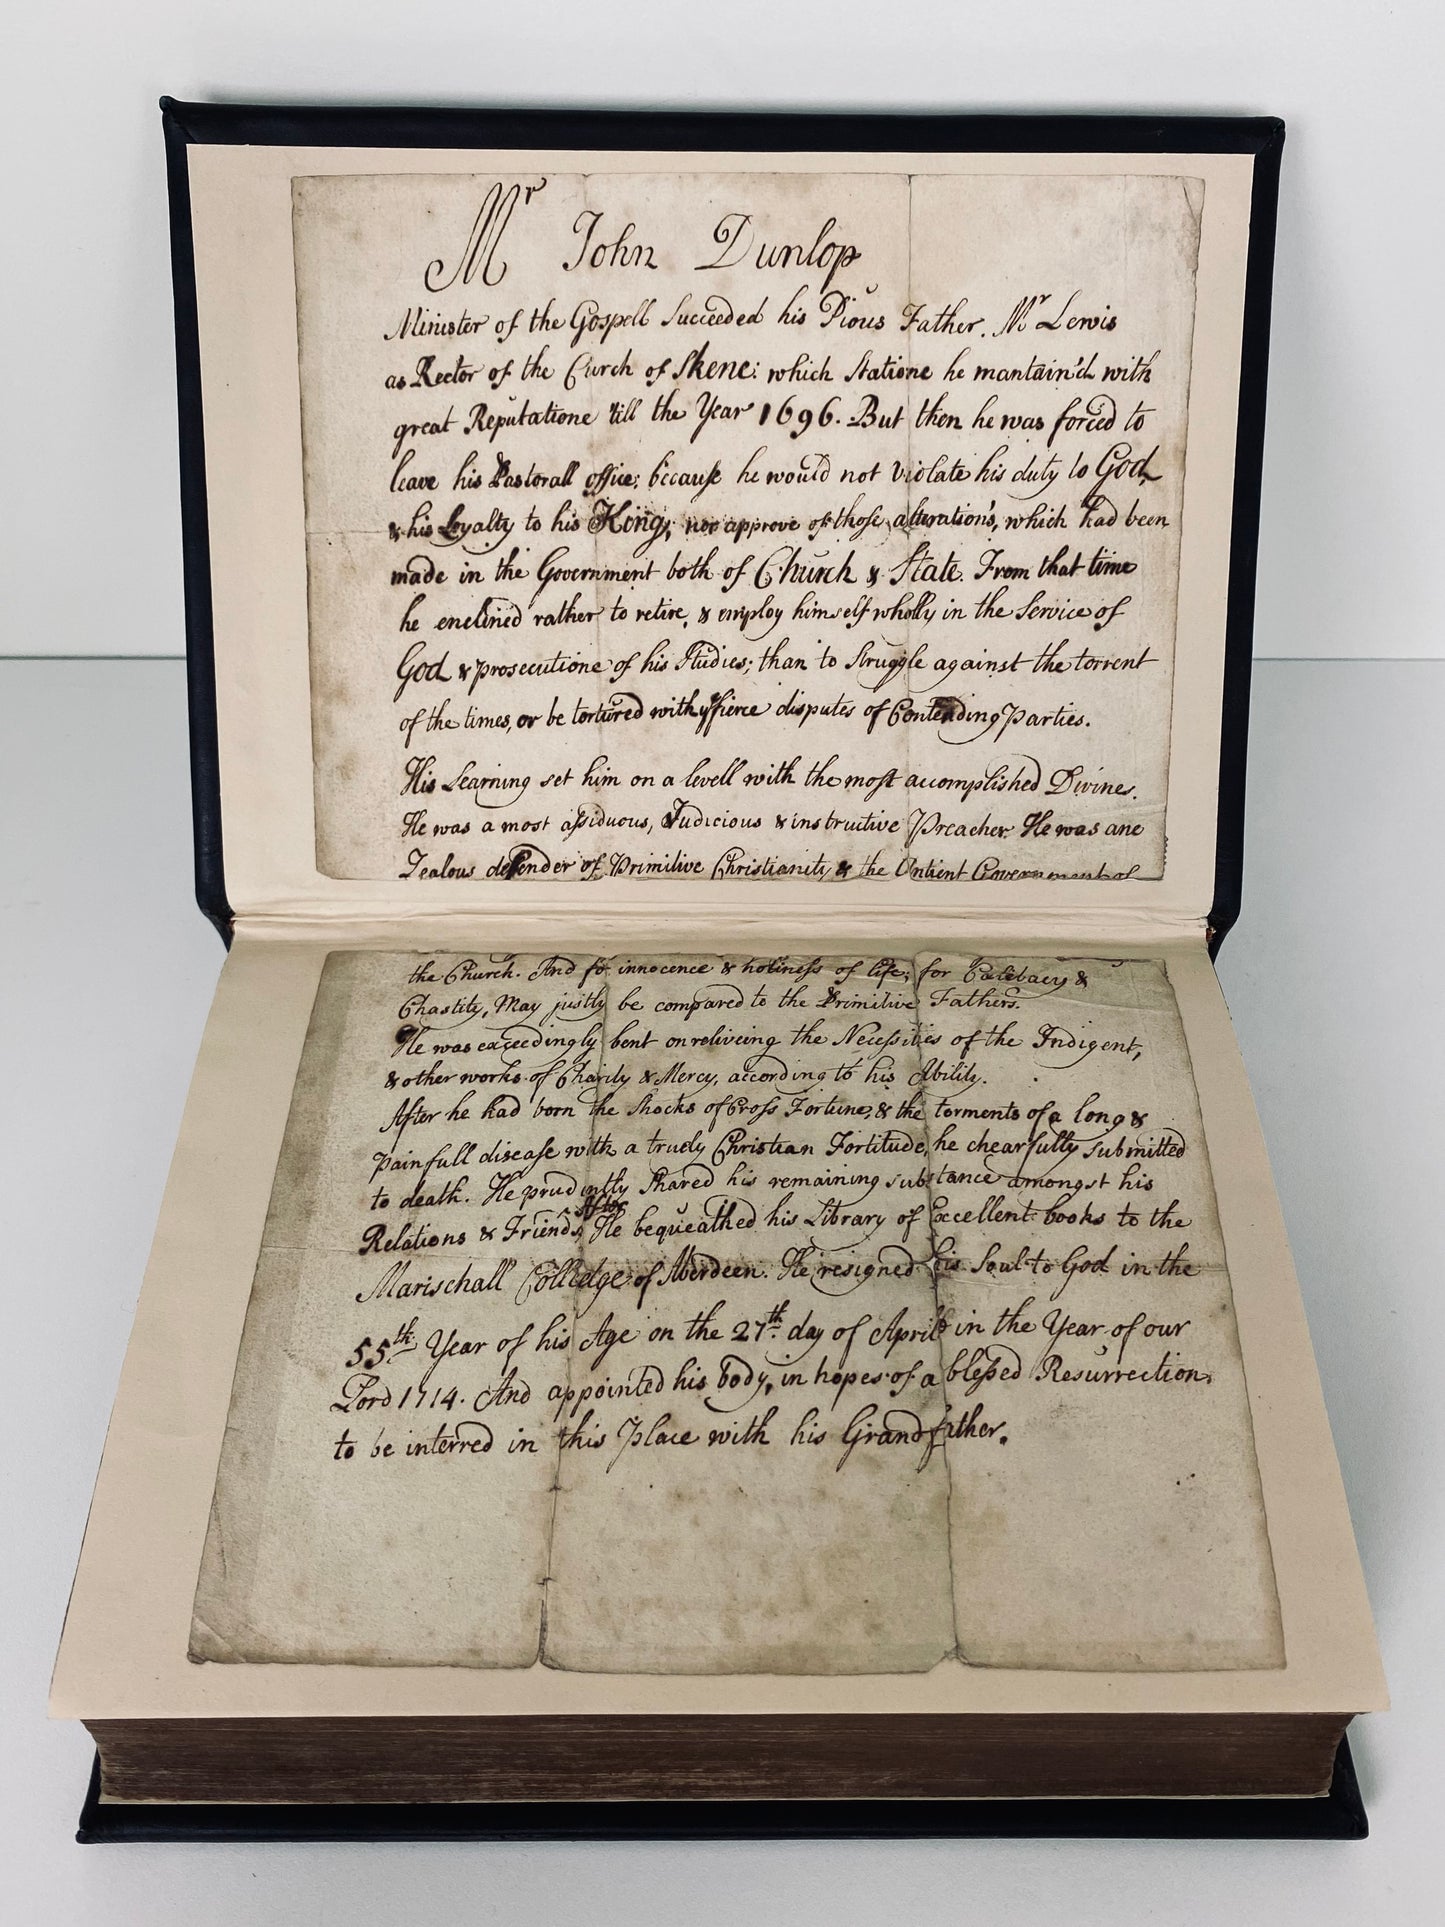 Mr John Dunlop
Minister of the Gospell Succeeded his Pious Father. Mr Lewis
as Rector of the Curch of Skene: which Statione he mantain'd with
great Reputatione 'till the Year 1696. But then he was forced to
leave his Pastorall office; because he would not violate his duty to God,
& his Loyalty to his King; nor approve of those alterations, which had been
made in the Government both of Church & State. From that time
he enclined rather to retire, & employ himself wholly in the Service of
God & prosecutione of his Studies; than to Struggle against the torrent
of the times, or be tortured with ye fierce disputes of Contending Parties.
His Learning set him on a levell with the most accomplished Divines.
He was a most assiduous, Judicious & instruitive Preacher. He was ane
Zealous defender of Primitive Christianity & the Antient Government of
the Church. And for innocence & holiness of life; for Calibacy &
Chastity, May justly be compared to the Primitive Fathers.
He was exceedingly bent on reliveing the Necessities of the Indigent,
& other works of Charity & Mercy, according to his Ability.
After he had born the Shocks of Cross Fortune, & the torments of a long &
painfull disease with a truely Christian Fortitude, he chearfully submitted
to death. He prudently Shared his remaining substance amongst his
Relations & Friends, After He bequeathed his Library of Excellent books to the
Marischall Colledge of Aberdeen. He resigned his Soul to God in the
55th Year of his Age on the 27th day of Aprile in the Year of our
Lord 1714. And appointed his body, in hopes of a blessed Resurrection,
to be interred in this Place with his Grandfather.